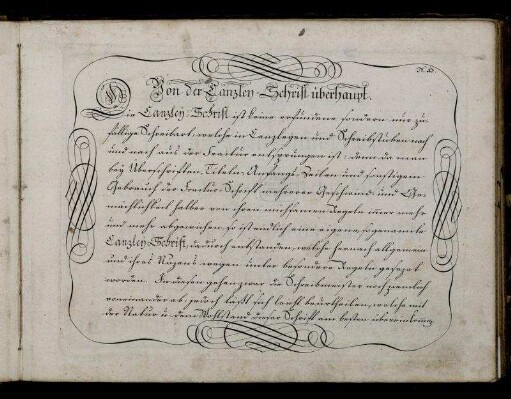 Von der Canzley-Schrift überhaupt.
Die Canzley-Schrift ist keine erfundene sondern nur zu-
fällige Schreibart, welche in Canzleyen und Schreibstuben nach
und nach aus der Fractur entsprungen ist: denn da man
bey Überschriften, Titeln, Anfangs-Zeilen und sonstigem
Gebrauch der Fractur-Schrift mehrerer Geschwind- und Ge-
mächlichkeit halber von ihren mühsamen Regeln immer mehr
und mehr abgewichen, so ist endlich eine eigene, sogenannte
Canzley-Schrift, dadurch entstanden, welche hernach allgemein
und ihres Nuzens wegen unter besondere Regeln gefaßt
worden. In diesen gehen zwar die Schreibmeister noch ziemlich
voneinander ab, jedoch läßt sich leicht beurtheilen, welche mit
der Natur u. dem Wohlstand dieser Schrift am besten übereinkomme